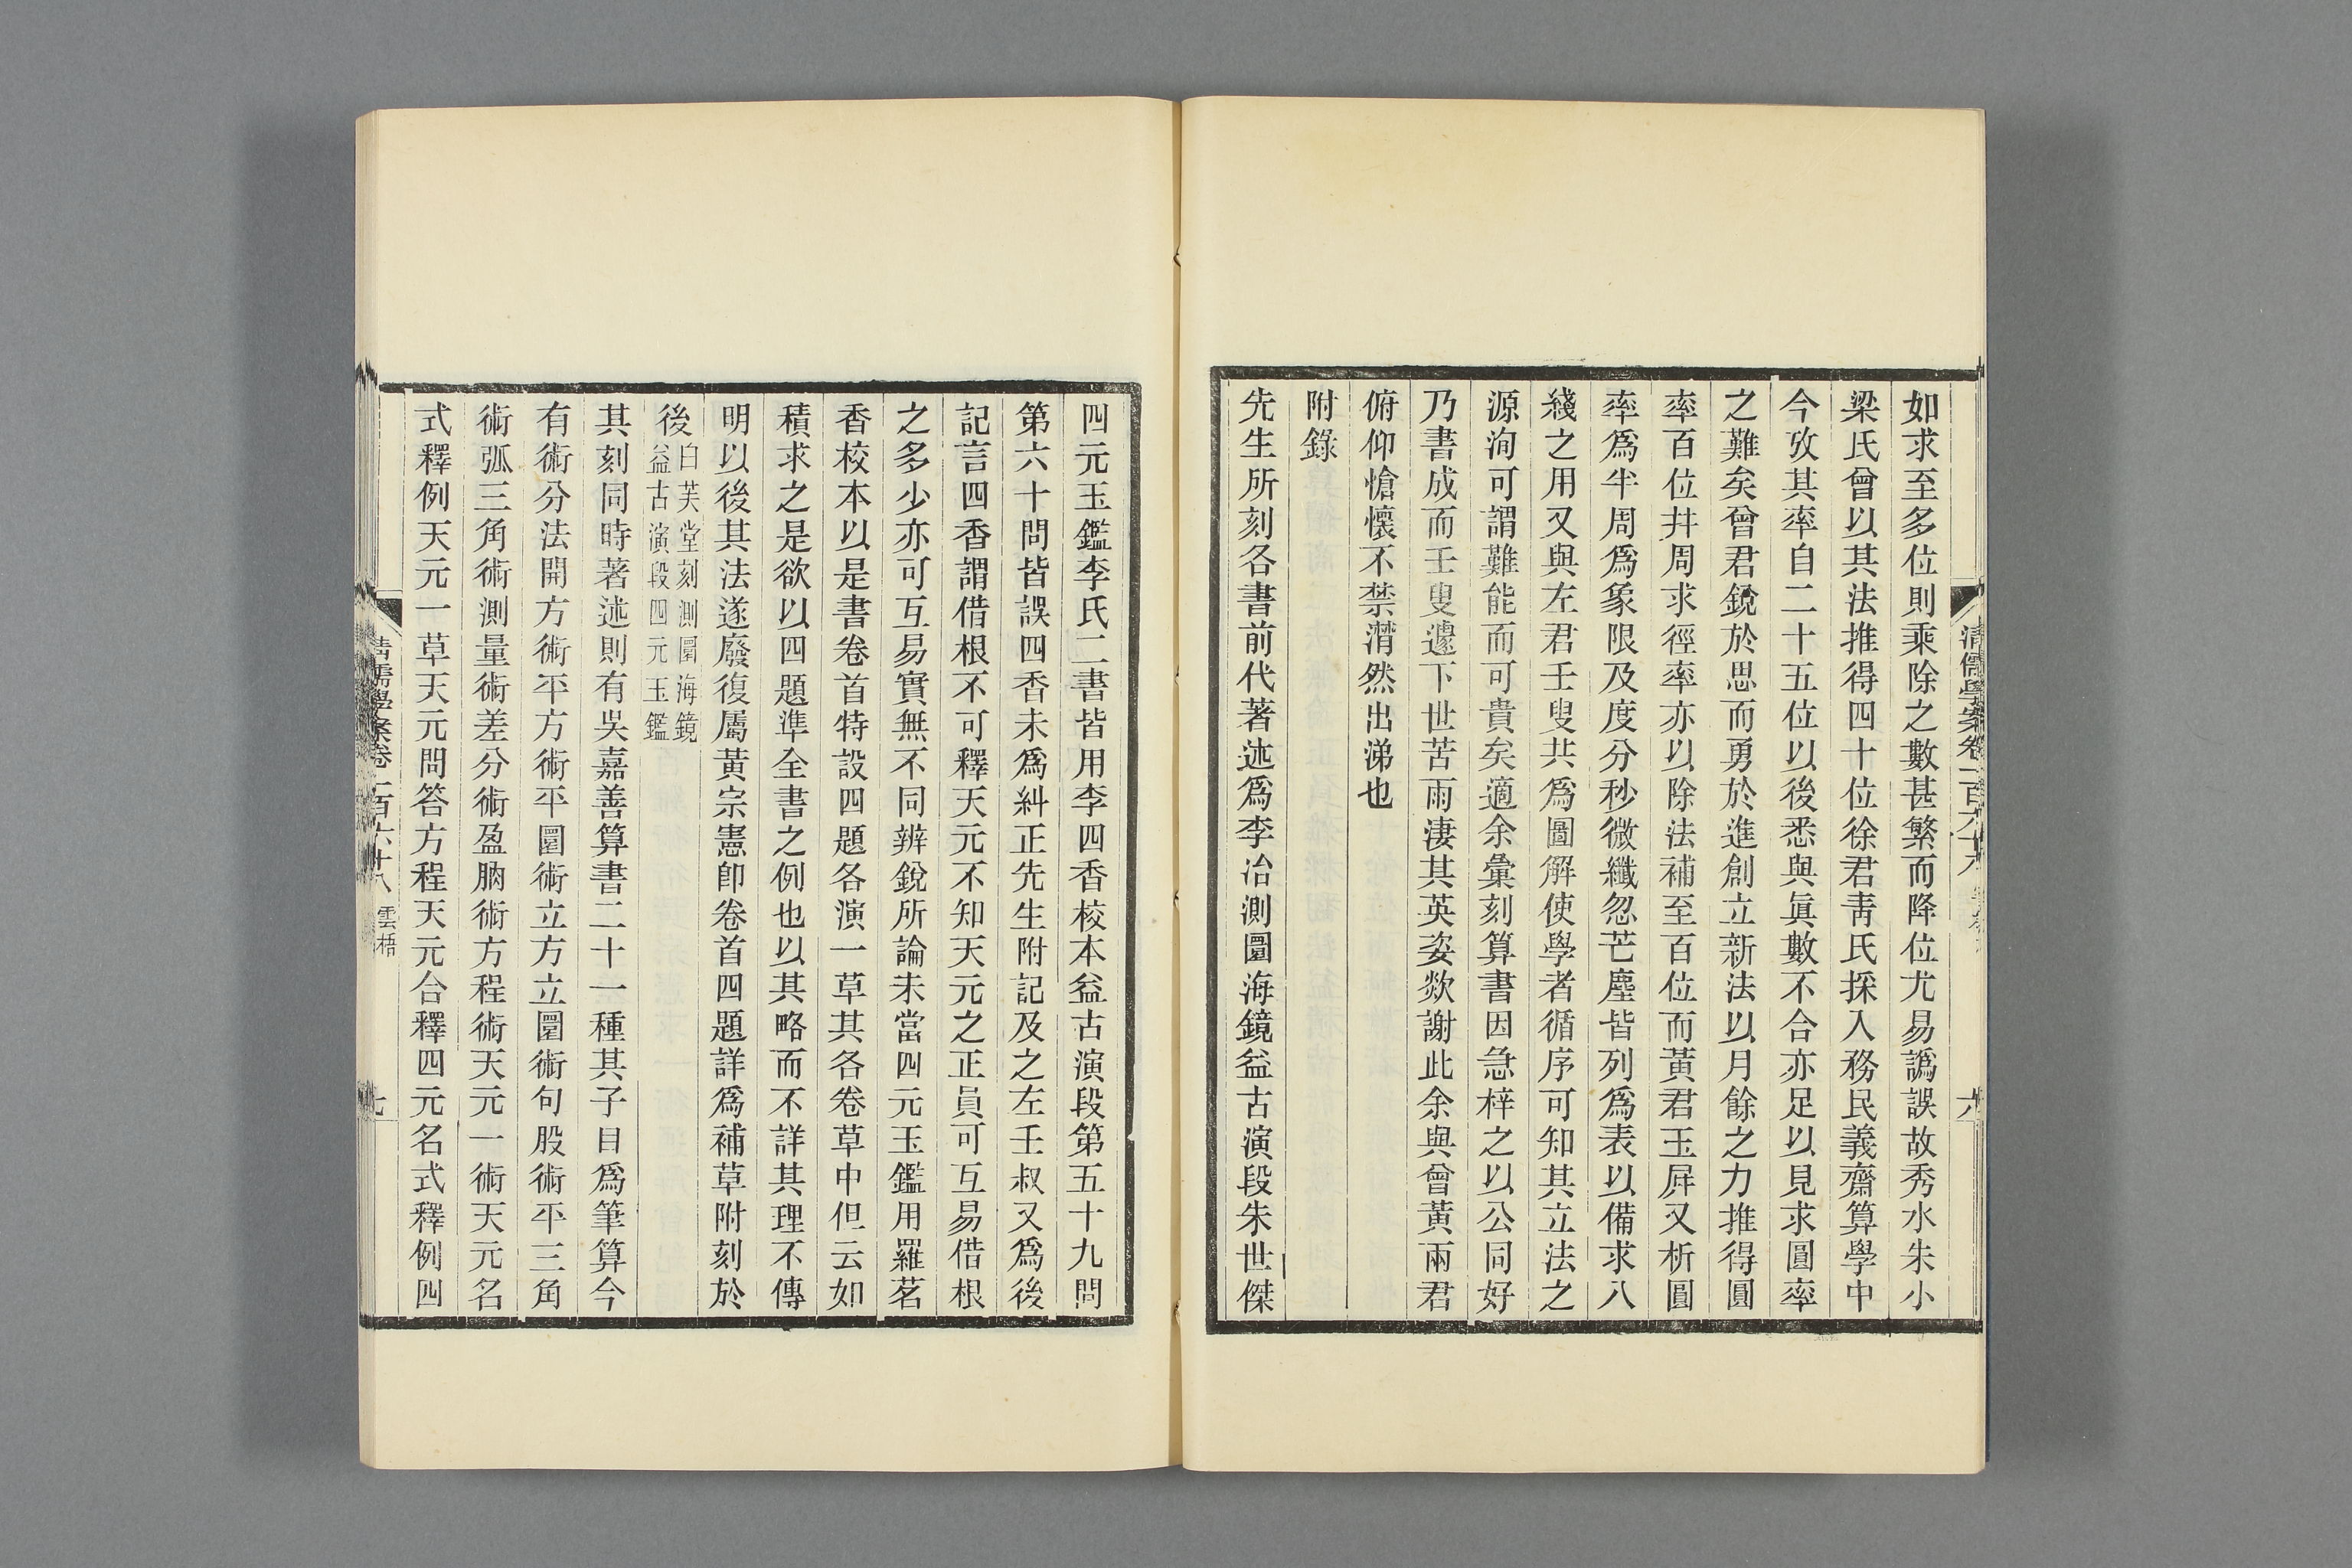 清儒學案卷一百六十八
六
如求至多位則乘除之數甚繁而降位尤易譌誤故秀水朱小
梁氏曾以其法推得四十位徐君青氏採入務民義齋算學中
今攷其率自二十五位以後悉與眞數不合亦足以見求圓率
之難矣曾君鏡於思而勇於進創立新法以月餘之力推得圓
率百位幷周求徑率亦以除法補至百位而黃君玉屛又析圓
率爲半周爲象限及度分秒微纖忽芒塵皆列爲表以備求八
綫之用又與左君壬叟共爲圖解使學者循序可知其立法之
源洵可謂難能而可貴矣適余彙刻算書因急梓之以公同好
乃書成而壬叟遽下世苦雨淒其英姿欻謝此余與曾黃兩君
俯仰愴懷不禁潸然出涕也
附錄
先生所刻各書前代著述爲李冶測圜海鏡益古演段朱世傑
四元玉鑑李氏二書皆用李四香校本益古演段第五十九問
第六十問皆誤四香未爲糾正先生附記及之左壬叔又爲後
記言四香謂借根不可釋天元不知天元之正員可互易借根
之多少亦可互易實無不同辨銳所論未當四元玉鑑用羅茗
香校本以是書卷首特設四題各演一草其各卷草中但云如
積求之是欲以四題準全書之例也以其略而不詳其理不傳
明以後其法遂廢復屬黃宗憲卽卷首四題詳爲補草附刻於
後白芙堂刻測圜海鏡
益古演段四元玉鑑
其刻同時著述則有吳嘉善算書二十一種其子目爲筆算今
有術分法開方術平方術平圜術立方立圜術句股術平三角
術弧三角術測量術差分術盈朒術方程術天元一術天元名
式釋例天元一草天元問答方程天元合釋四元名式釋例四
清儒學案卷一百六十八 雲梧
七